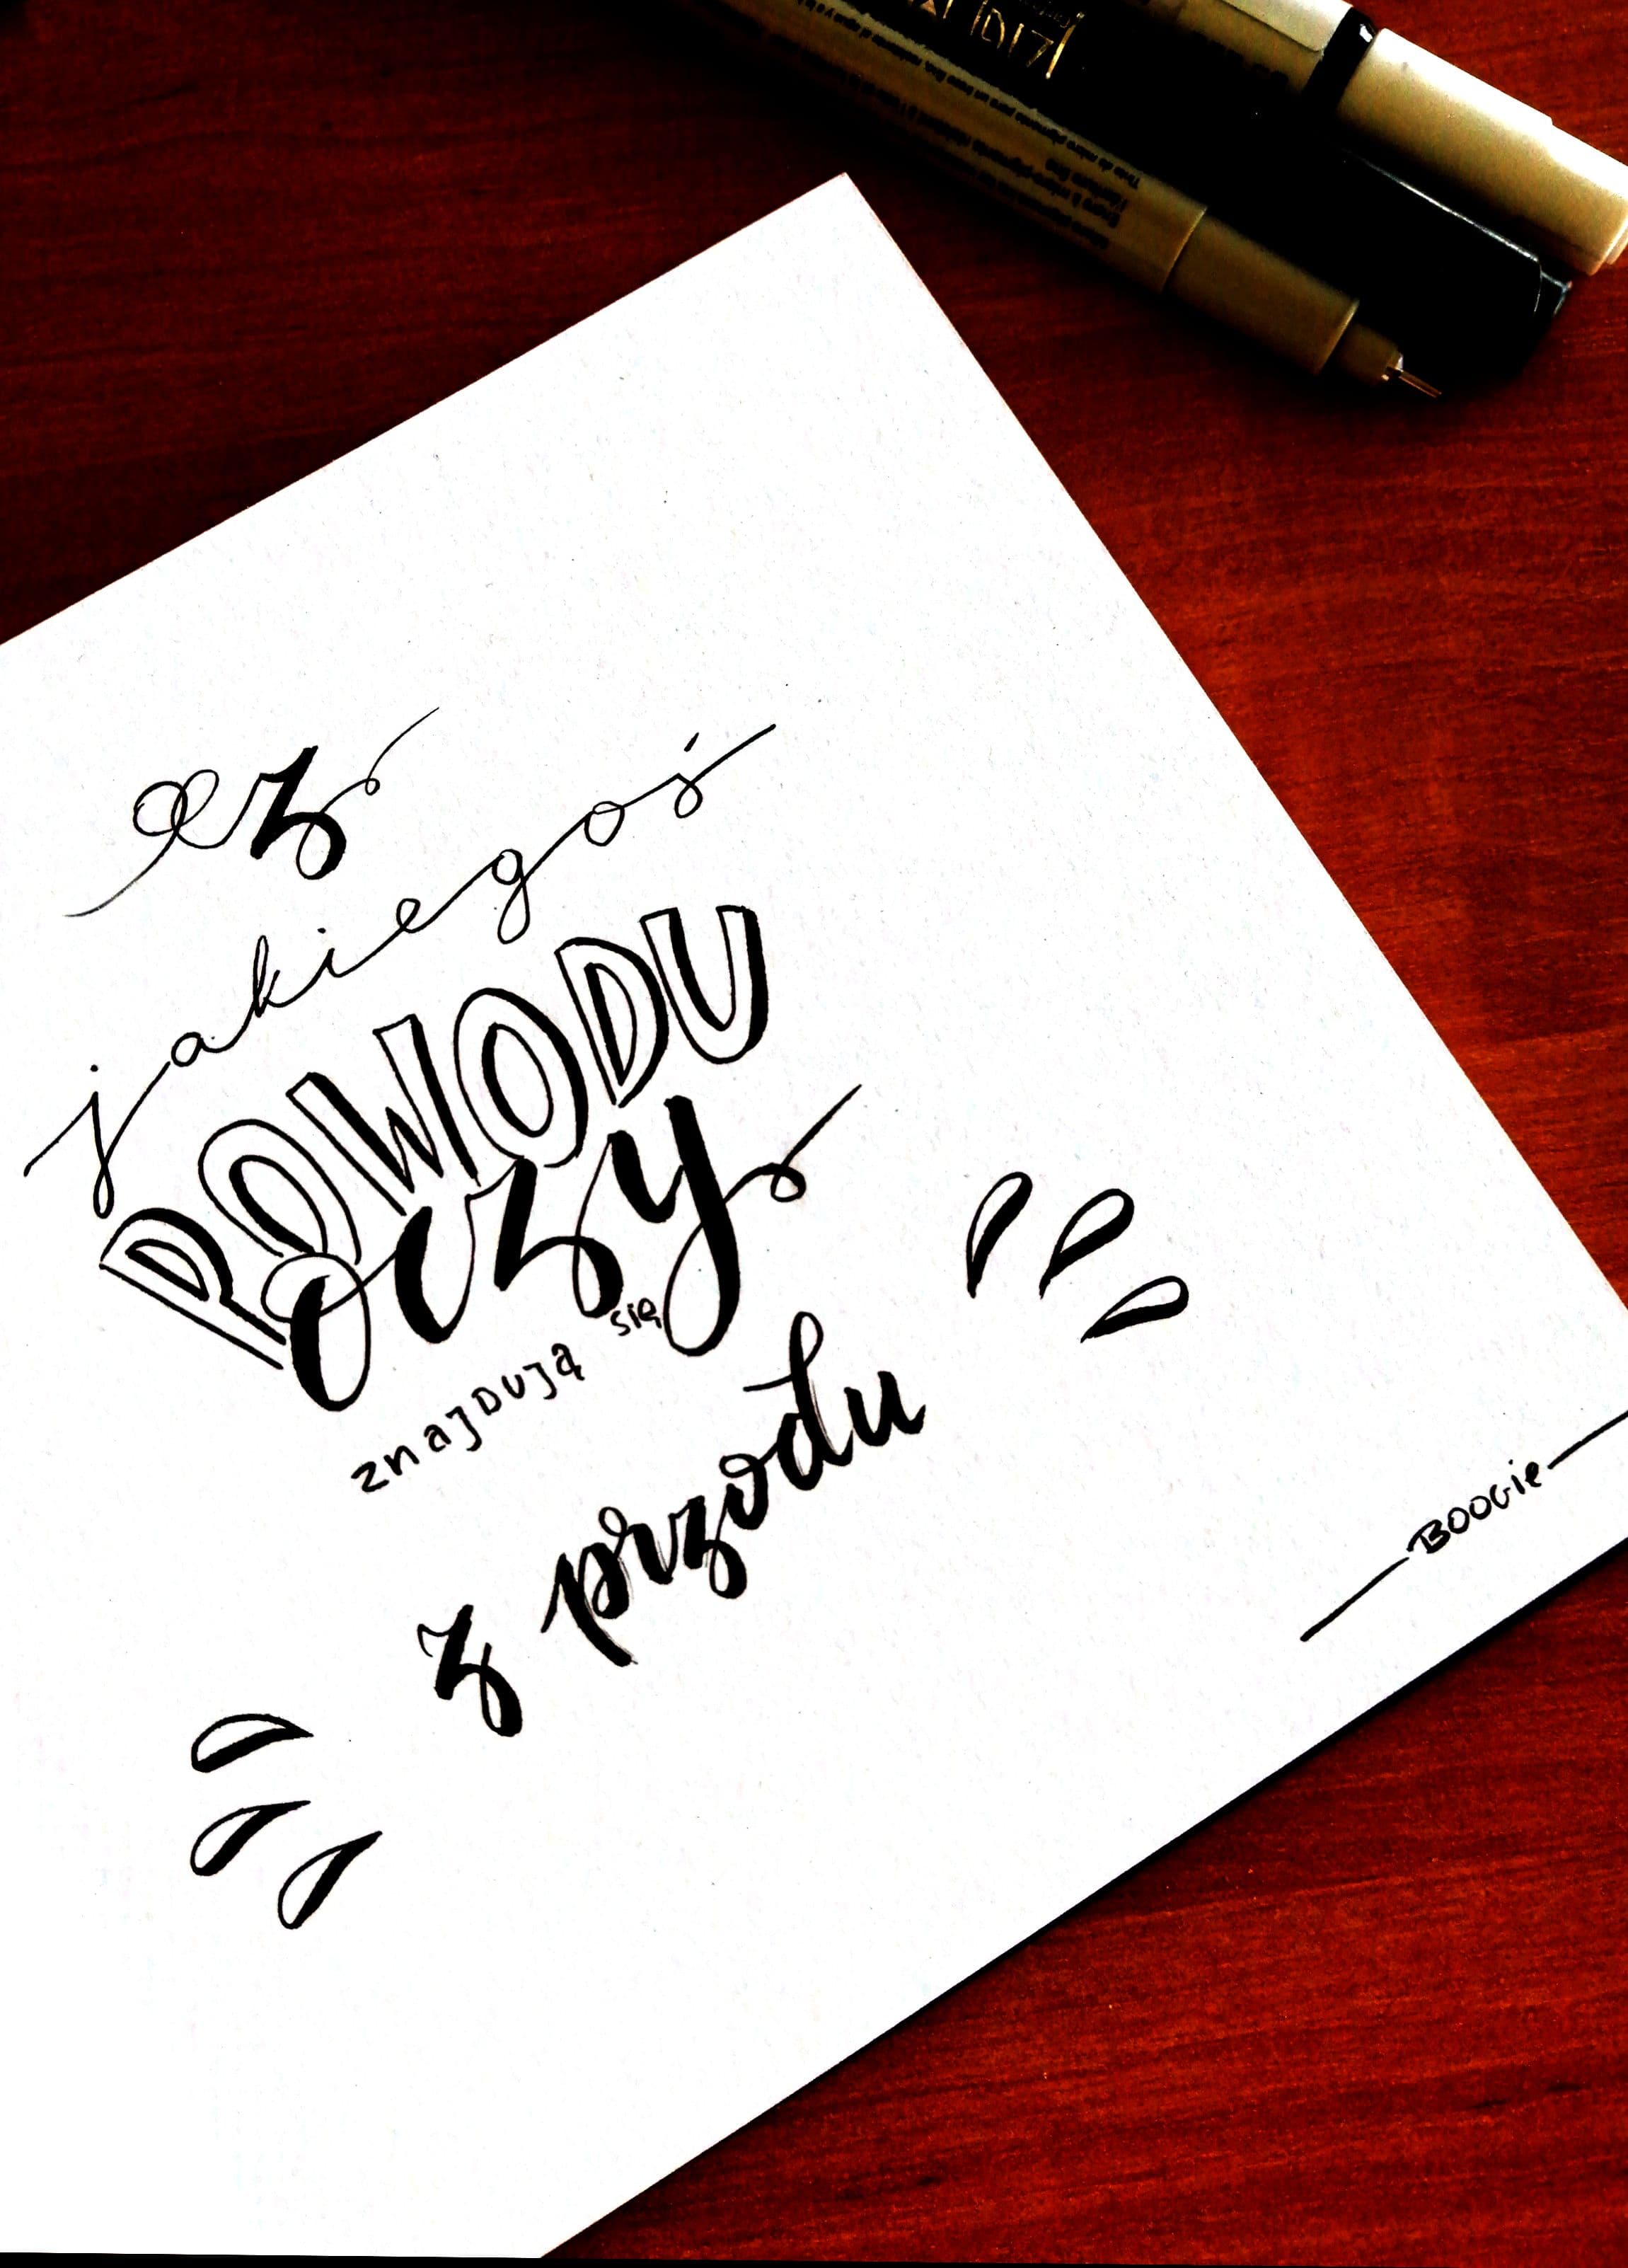 z
jakiegoś
POWODU
oczy
znajDują się
z przodu
BOOGie